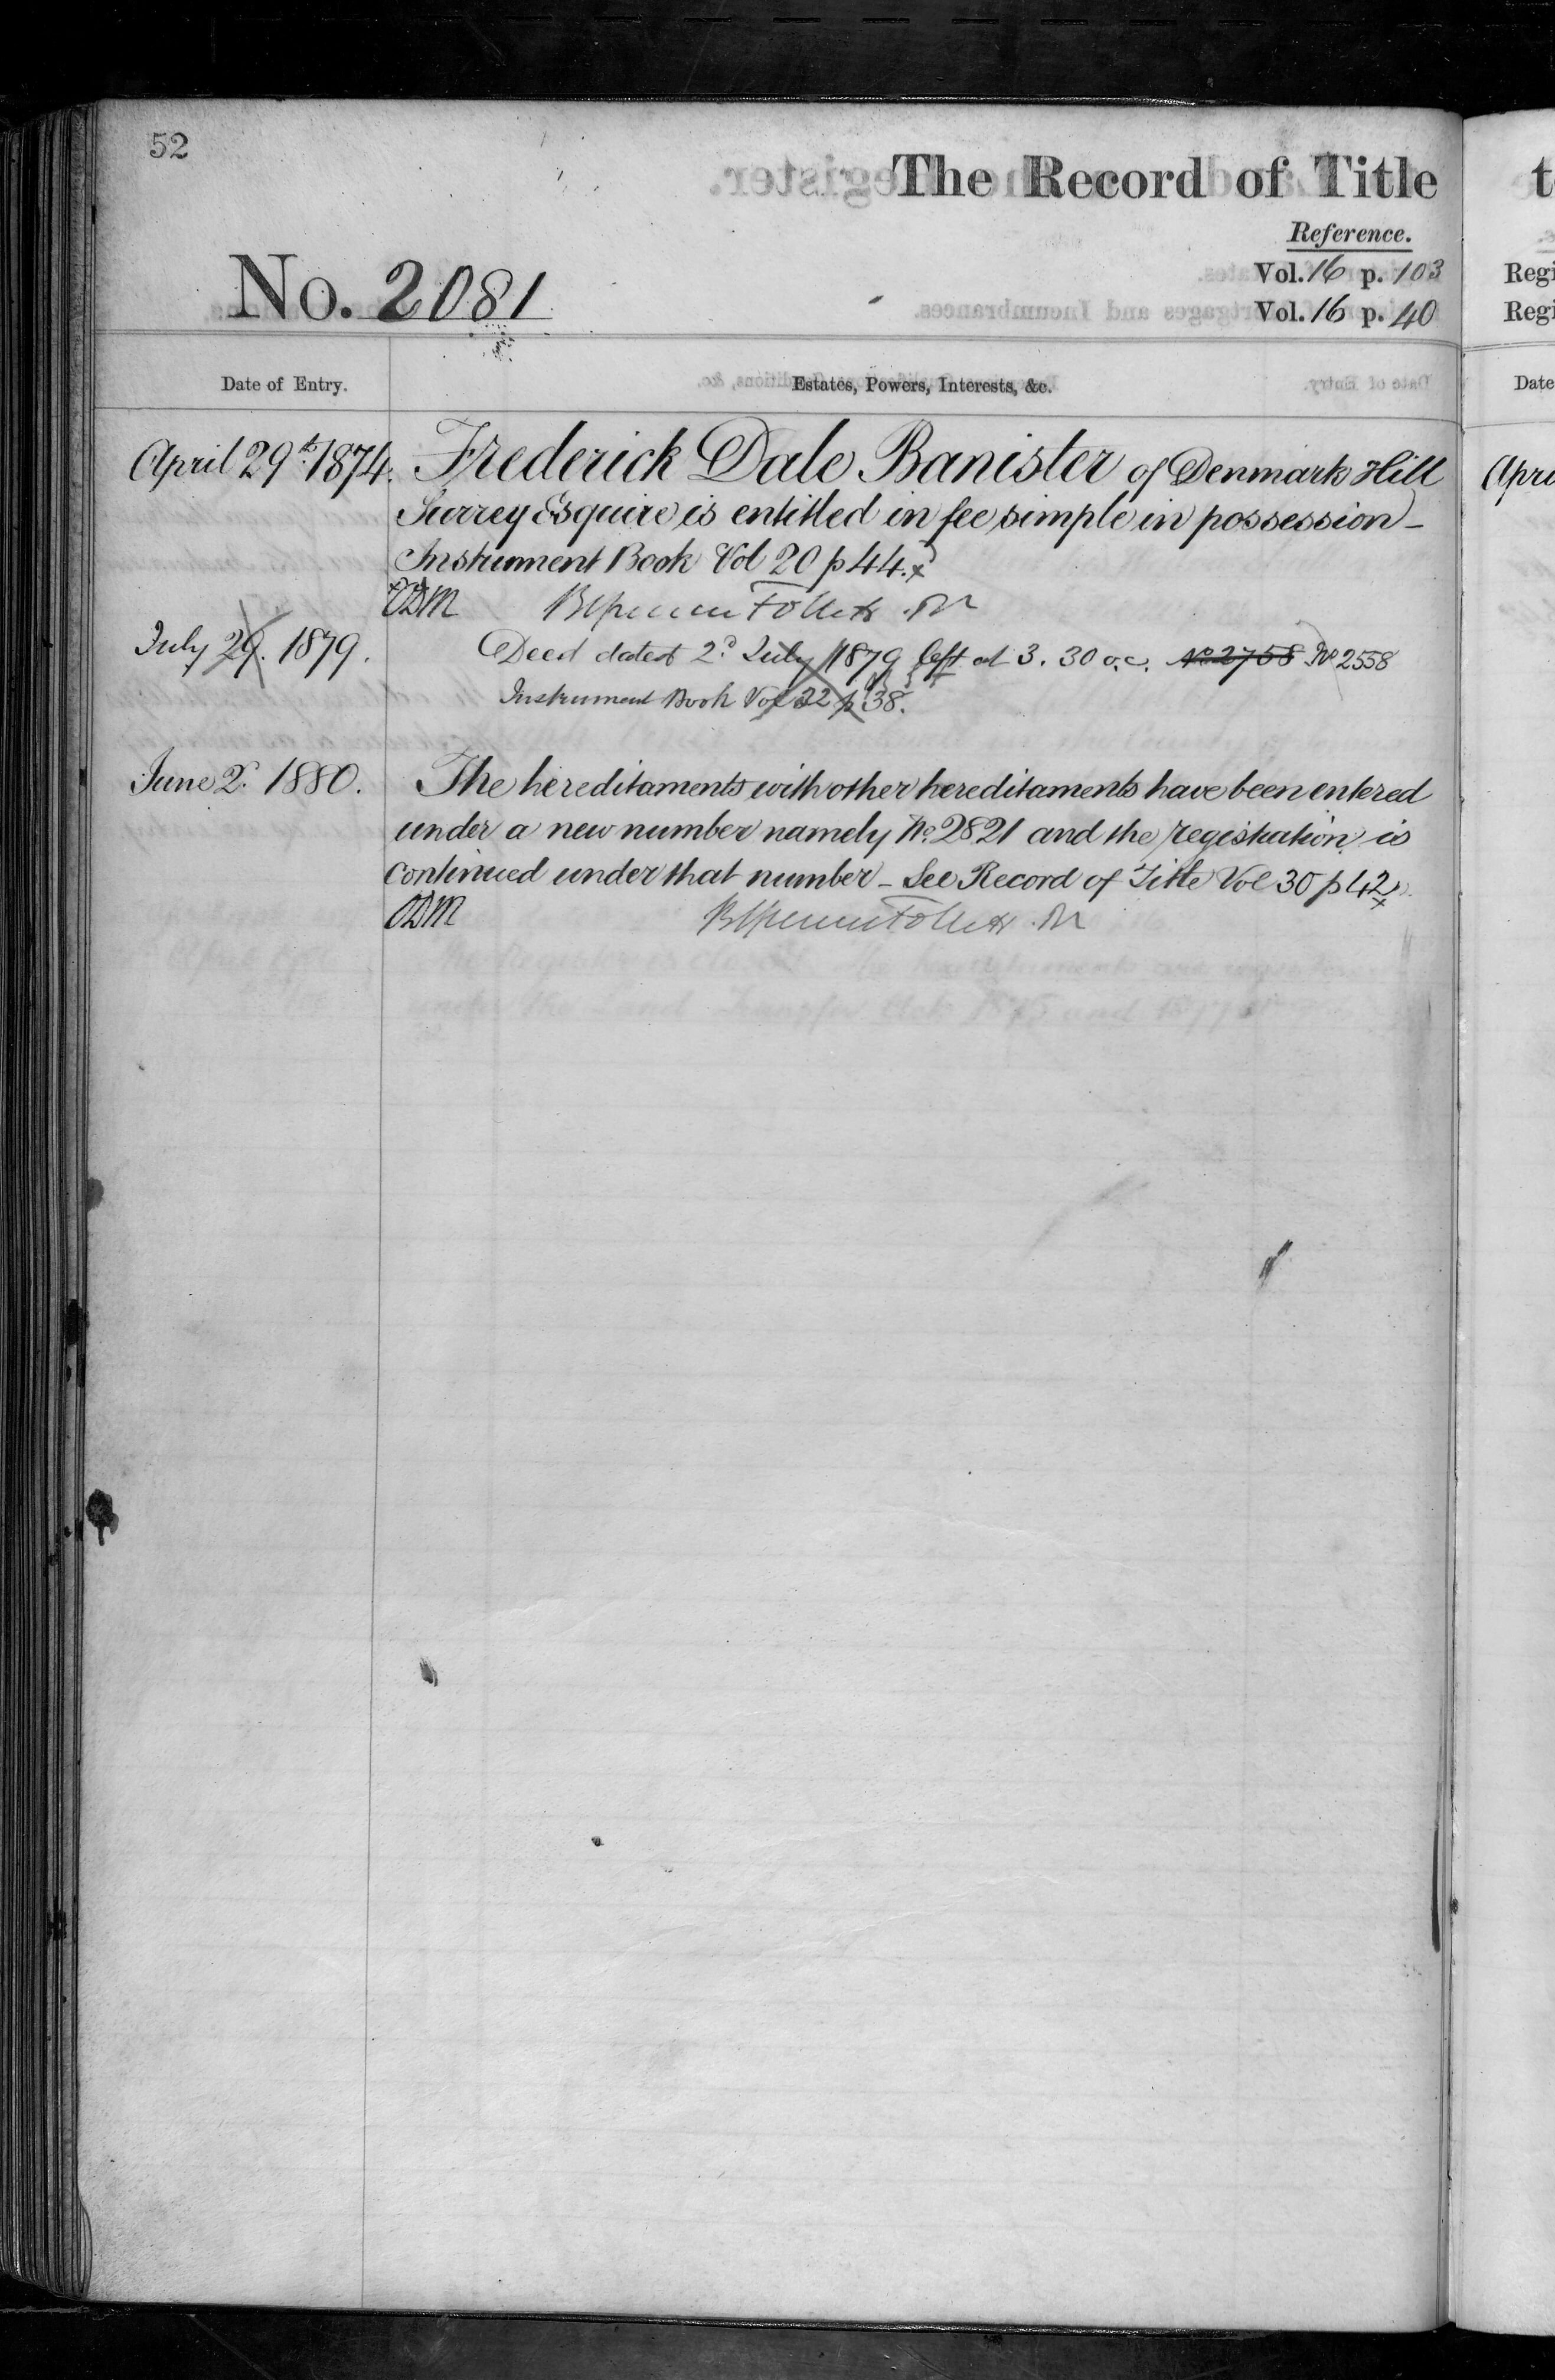 52
The Record of Title
Reference.
Vol. 16 p. 103
Vol. 16 p. 40
No. 2081
Date of Entry.
Estates, Powers, Interests, &c.
April 29th 1874.
Frederick Dale Banister of Denmark Hill
Surrey Esquire is entitled in fee simple in possession -
Instrument Book Vol 20 p 44.
ODM
July 29. 1879.
Deed dated 2d July 1879 left at 3.30 o.c. No 2758 No 2558
Instrument Book Vol 22 p 38.
June 2d 1880.
The hereditaments with other hereditaments have been entered
under a new number namely No. 2821 and the registration is
continued under that number - See Record of Title Vol 30 p 42
ODM
t
Regi
Regi
Date
Apri